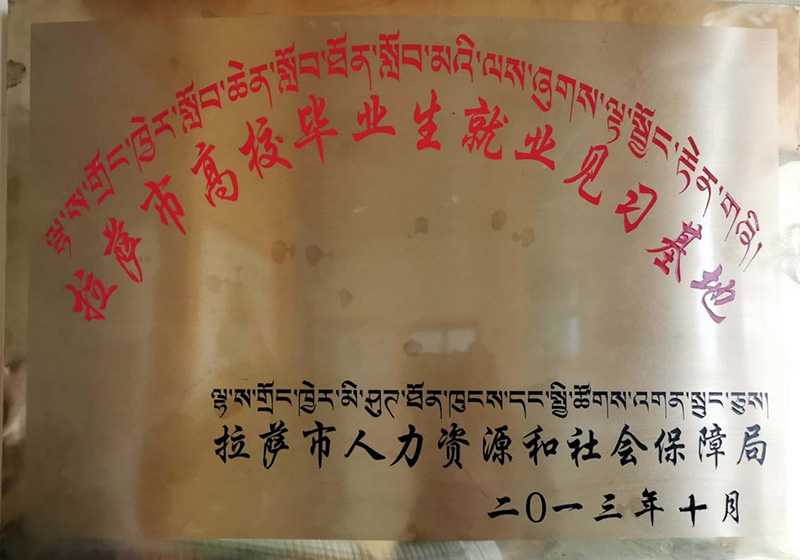 ལྷ་ས་གྲོང་ཁྱེར་སློབ་ཆེན་སློབ་ཐོན་སློབ་མའི་ལས་ཞུགས་ལྟ་སྦྱོང་རྟེན་གཞི།
拉萨市高校毕业生就业见习基地
ལྷ་ས་གྲོང་ཁྱེར་མི་ཤུགས་ཐོན་ཁུངས་དང་སྤྱི་ཚོགས་འགན་སྲུང་ཅུས།
拉萨市人力资源和社会保障局
二〇一三年十月